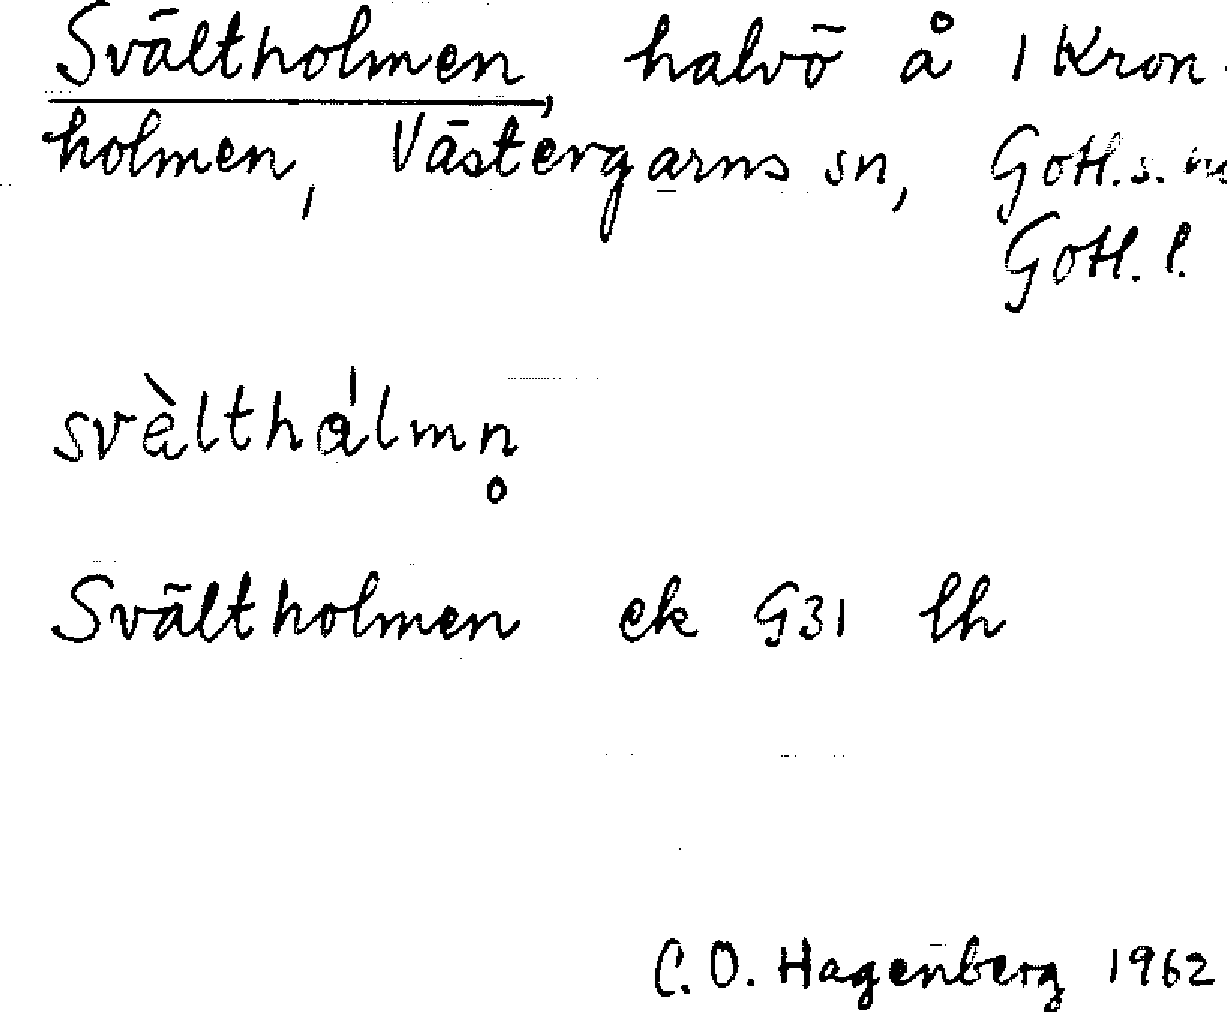 Svältholmen, halvö å 1 Kron-
holmen, Västergarns sn, Gotl. s.
Gotl. l.
svèlthálmn̥
Svältholmen ek G31 lh
C.O. Hagenberg 1962